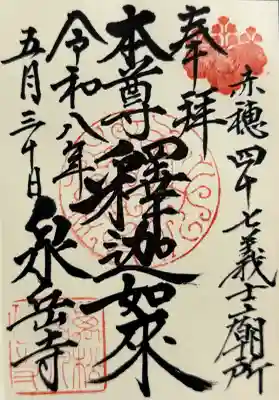 赤穂四十七義士廟所
奉拝
本尊釋迦如來
令和八年
五月三十日
泉岳寺